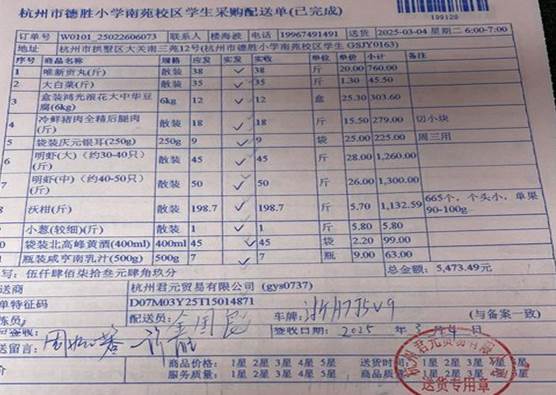 杭州市德胜小学南苑校区学生采购配送单(已完成)
199120
订单号 W0101_25022606073 联系人 楼海波 电话 19967491491 送货 2025-03-04 星期二 6:00-7:00
地址 杭州市拱墅区大关南三苑12号(杭州市德胜小学南苑校区学生 GSJY0163)
序号 商品名称 规格 应发 实发 实收 单位 单价 小计 备注
1 唯新贡丸(斤) 散装 38 ✓ 38 斤 20.00 760.00
2 大白菜(斤) 散装 35 ✓ 35 斤 1.30 45.50
3 盒装鸿光滚花大中华豆腐(6kg) 6kg 12 ✓ 12 盒 25.30 303.60
4 冷鲜猪肉全精后腿肉(斤) 散装 18 ✓ 18 斤 15.50 279.00 切小块
5 袋装庆元银耳(250g) 250g 9 ✓ 9 袋 25.00 225.00 周三用
6 明虾(大)(约30-40只)(斤) 散装 45 ✓ 45 斤 28.00 1,260.00
7 明虾(中)(约40-50只)(斤) 散装 50 ✓ 50 斤 26.00 1,300.00
8 沃柑(斤) 散装 198.7 ✓ 198.7 斤 5.70 1,132.59 665个，个头小，单果90-100g
9 小葱(较细)(斤) 散装 1 ✓ 1 斤 5.80 5.80
0 袋装北高峰黄酒(400ml) 400ml 45 ✓ 45 袋 2.20 99.00
1 瓶装咸亨南乳汁(500g) 500g 7 ✓ 7 瓶 9.00 63.00
写: 伍仟肆佰柒拾叁元肆角玖分 总金额: 5,473.49元
送货商 杭州君元贸易有限公司 (gys0737)
单特征码 D07M03Y25T15014871
配送员: 车牌: (与备案一致)
签收日期: 2025 年 3 月 4 日
送留言:
商品价格: 1星 2星 3星 4星 5星 送货时间: 1星
服务质量: 1星 2星 3星 4星 5星 商品质量:
杭州君元贸易有限公司
送货专用章